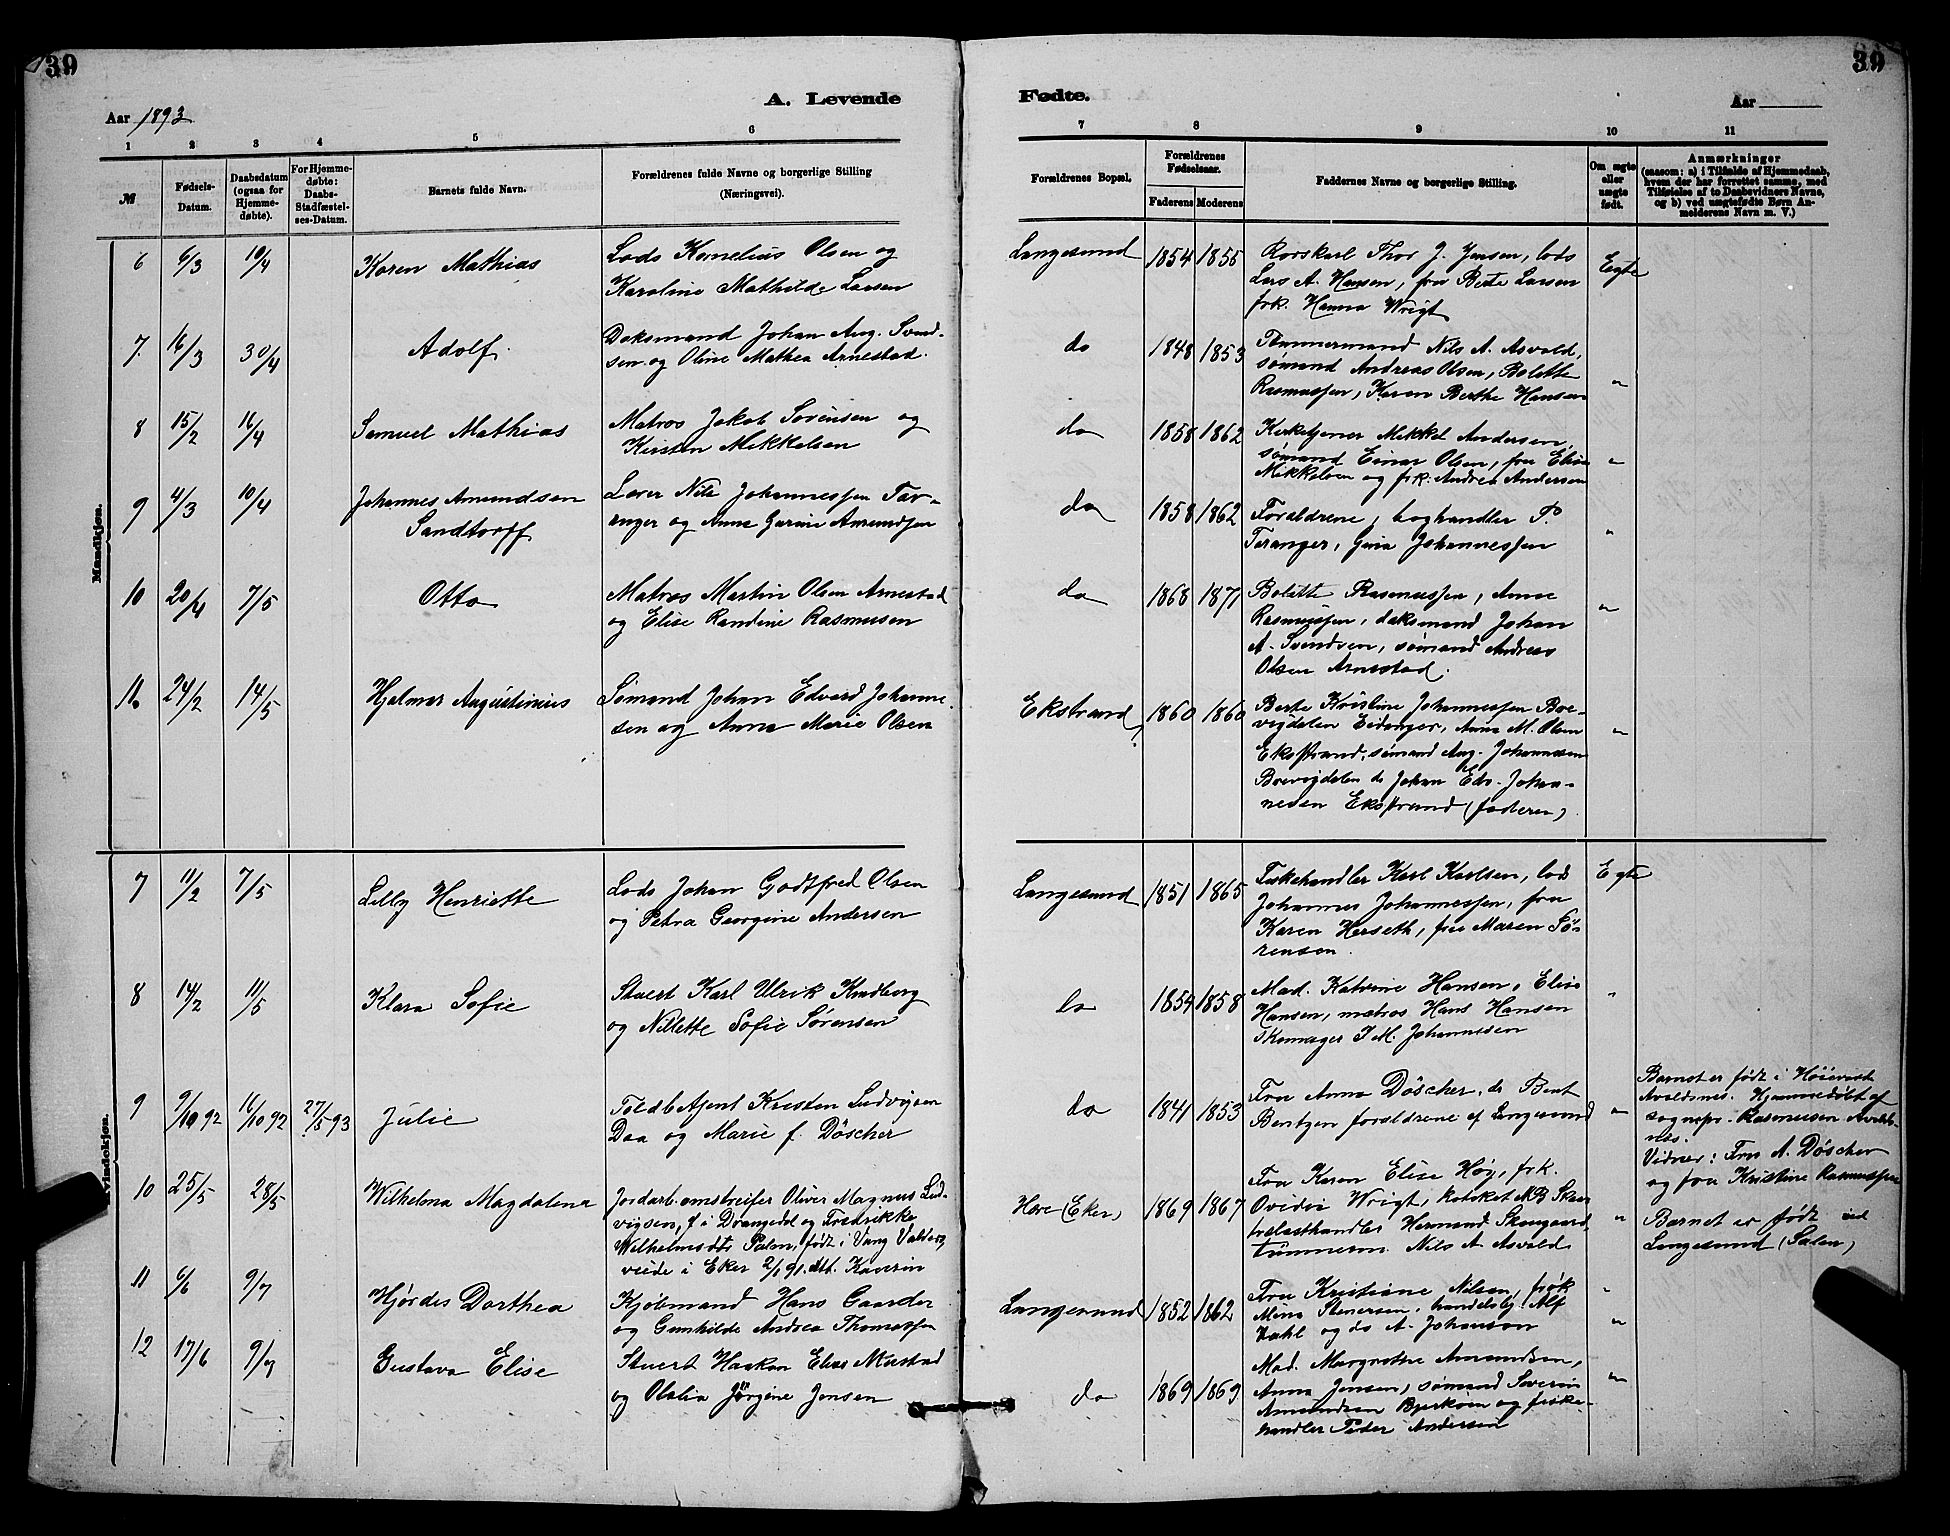 39
39
A. Levende
Fødte.
Aar 1893
Aar
1
2
3
4
5
6
7
8
9
10
11
№
Fødsels-
Datum.
Daabsdatum
(ogsaa for
Hjemme-
døbte).
For Hjemme-
døbte:
Daabs-
Stadfæstel-
ses-Datum.
Barnets fulde Navn.
Forældrenes fulde Navne og borgerlige Stilling
(Næringsvei).
Forældrenes Bopæl.
Forældrenes
Fødselsaar.
Faderens
Moderens
Faddernes Navne og borgerlige Stilling.
Om ægte
eller
uægte
født.
Anmærkninger
(saasom: a) i Tilfælde af Hjemmedaab,
hvem der har forrettet samme, med
Tilføielse af to Daabsvidners Navne,
og b) ved uægtefødte Børn An-
melderens Navn m. V.)
Mandkjøn.
6 6/3 10/4 Karen Mathias
Lods Kornelius Olsen og
Karoline Mathilde Larsen
Langesund 1854 1855
Rorskarl Thor J. Jensen, lods
Lars A. Hansen, fru Berte Larsen
frk. Hanna Wrigt
Egte
7. 16/3 30/4 Adolf.
Doksmand Johan Aug. Svend-
sen og Oline Mathea Arnestad.
do 1848 1853
Tømmermand Nils A. Asvald,
sømand Andreas Olsen, Bolette
Rasmussen, Karen Berthe Hansen
"
8 15/2 16/4 Samuel Mathias
Matros Jakob Sørensen og
Kirsten Mikkelsen
do 1858 1862
Kirketjener Mikkel Andersen,
sømand Einar Olsen, fru Elise
Mikkelsen og frk. Andrea Andersen
"
9 4/3 10/4 Johannes Amundsen
Sandtorff
Lærer Nils Johannessen Tar-
anger og Anne Gurine Amundsen
do 1858 1862
Forældrene, boghandler P.
Taranger, Gina Johannessen
"
10 20/4 7/5 Otto
Matros Martin Olsen Arnestad
og Elise Randine Rasmusen
do 1868 1871
Bolette Rasmussen, Anne
Rasmussen, doksmand Johan
A. Svendsen, sømand Andreas
Olsen Arnestad.
"
11. 24/2 14/5 Hjalmar Augustinius
Sømand Johan Edvard Johanne-
sen og Anna Marie Olsen
Ekstrand 1860 1860
Berte Kristine Johannessen Bre-
vigdalen Eidanger, Anna M. Olsen
Ekstrand, sømand Aug. Johannessen
Brevigdalen do Johan Edv. Johan-
nesen Ekstrand (faderen)
"
Kvindekjøn.
7 11/2 7/5 Lilly Henriette
Lods Johan Godtfred Olsen
og Petra Georgine Andersen
Langesund 1851 1865
Fiskehandler Karl Karlsen, lods
Johannes Johannessen, fru
Karen Herseth, fru Maren Sø-
rensen.
Egte
8 14/2 11/5 Klara Sofie
Stuert Karl Ulrik Kindberg
og Nillette Sofie Sørensen
do 1854 1858
Mad. Katrine Hansen, Elise
Hansen, matros Hans Hansen
skomager J. M. Johannesen
"
9 9/10 92 16/10 92 27/5 93 Julie
Toldb. Ajent Kristen Ludvigsen
Daa og Marie f. Döscher
do 1841 1853
Fru Anna Döscher, do Bent
Bentzen forældrene af Langesund
"
Barnet er født i
Avaldsnes. Hjemmedøbt af
sognepr. Rasmussen Avalds-
nes.
Vidner: Fru A. Döscher
og fru Kristine Rasmussen
10 25/5 28/5 Wilhelma Magdalena
Jordarb. omstreifer Oliver Magnus Lud-
vigsen, f. i Drangedal og Fredrikke
Wilhelmsdtr Palm, født i Vang Valders,
viede i Eker 2/1 91.
Here (Eker) 1869 1867
Fru Karen Elise Høy, frk.
Ovidia Wrigt,
Hermand Skougaard,
tømmerm. Nils A. Asvald
"
Barnet er født ved
Langesund (Salen)
11 6/6 9/7 Hjørdis Dorthea
Kjøbmand Hans Gaarder
og Gunhilde Andrea Thomassen
Langesund 1852 1862
Fru Kristiane Nilsen, frøk
Mina Stenersen, handelsbj. Alf
Dahl og do A. Johanson
"
12 17/6 9/7 Gustava Elise
Stuert Haakon Elias Mustad
og Olalia Jørgine Jensen
do 1869 1869
Mad. Margrethe Amundsen,
Anna Jensen, sømand Severin
Amundsen Bjerkøen og fiske-
handler Peder Andersen
"